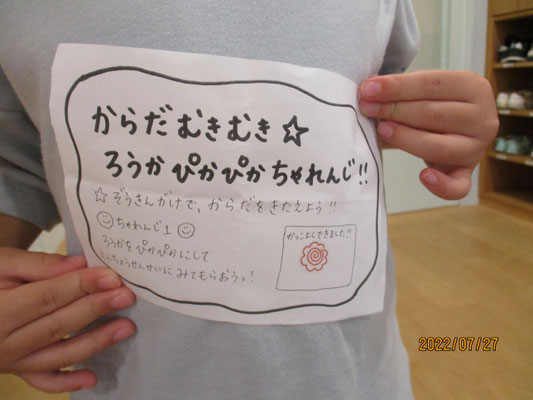 からだ むきむき ☆
ろうか ぴかぴか ちゃれんじ!!
☆ ぞうきんがけで、からだをきたえよう!!
ちゃれんじ1
ろうかを ぴかぴかにして
えんちょうせんせいに みてもらおうっ!
かっこよくできました!!
2022/07/27